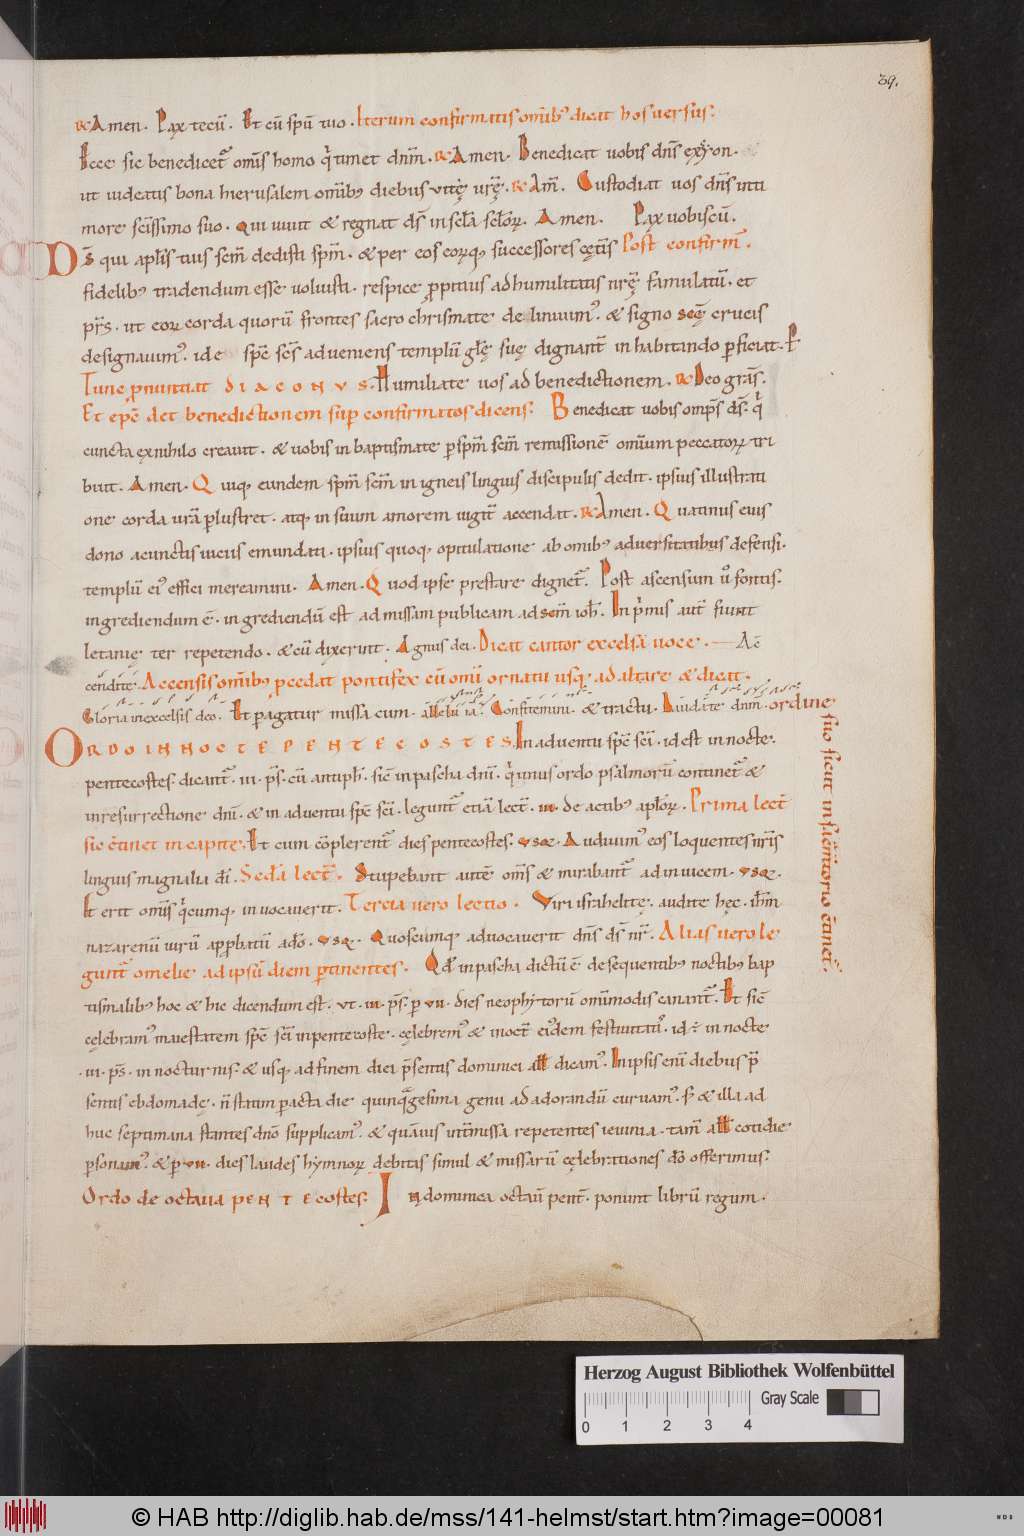 39.
R Amen. Pax tecū. Et cū spū tuo. Iterum confirmatis omīb; dicat hos versus.
Ecce sic benedicet̄ om̄s homo q̇ timet dn̄m. R Amen. Benedicat uobis dn̄s ex syon.
ut uideatis bona hierusalem omīb; diebus uitę ur̄ę. R Am̄. Custodiat uos dn̄s inti
more sc̄issimo suo. Qui uiuit & regnat ds̄ in sc̄la sc̄lorꝝ. Amen. Pax uobiscū.
Ds̄ qui apl̄is tuis sc̄m dedisti sp̄m. & per eos eorꝝq; successores cęt̄is Post confirm̄.
fidelib; tradendum esse uoluisti. respice ꝓpitius ad humilitatis nr̄ę famulatū. et
pr̄s. ut eorꝝ corda quorū frontes sacro chrismate deliniuim;. & signo sc̄ę crucis
designauim;. id e sp̄c sc̄s adueniens templū gl̄ę suę dignant̄ inhabitando ꝑficiat. P
Tunc ꝓnuntiat DIACONVS. Humiliate uos ad benedictionem. R Deo gra͞s.
Et ep̄c det benedictionem sup confirmatos dicens. Benedicat uobis omp̄s ds̄. q̇
cuncta ex nihilo creauit. & uobis in baptismate ꝑ sp̄m sc̄m remissionē omium peccatorꝝ tri
buit. Amen. Quiq; eundem sp̄m sc̄m in igneis linguis discipulis dedit. ipsius illustrati
one corda ur̄a ꝑlustret. atq; in suum amorem iugit̄ accendat. R Amen. Quatinus eius
dono a cunctis uiciis emundati. ipsius quoq; opitulatione ab omib; aduersitatibus defensi.
templū ei; effici mereamini. Amen. Quod ipse prestare dignet̄. Post ascensum u͞ fontis.
ingrediendum ē. ingrediendū est ad missam publicam ad sc̄m ioh̄. In p̍mis aut̄ fiunt
letanię ter repetendo. & cū dixerint. Agnus dei. Dicat cantor excelsa uoce. Ac
cendite. Accensis omīb; ꝓcedat pontifex cū omī ornatu usq; ad altare & dicat.
Gloria in excelsis deo. Et ꝑagatur missa cum. alleluia. Confitemini. & tractu. Laudate dn̄m. ordine
suo sicut in sacramtorio c̄tinet̄.
ORDO IN NOCTE PENTECOSTES. In aduentu sp̄c sc̄i. id est in nocte.
pentecostes. dicant̄. iii. ps̄. cū antiph̄. sic̄ in pascha dn̄i. q̍ unus ordo psalmorū continet̄ &
in resurrectione dn̄i. & in aduentu sp̄c sc̄i. legunt̄ etiā lect̄. iii. de actib; apl̄orꝝ. Prima lect̄
sic c̄tinet in capite. Et cum cōplerent̄ dies pentecostes. vsq. Audiuim; eos loquentes nr̄is
linguis magnalia dī. Sec̄da lect̄. Stupebant autē om̄s & mirabant̄ ad inuicem. vsq.
Et erit om̄is q̍cumq; inuocauerit. Tercia uero lectio. Viri israhelitę. audite hęc. ihm̄
nazarenū uirū apꝓbatū a dō. vsq. Quoscumq; aduocauerit dn̄s ds̄ nr̄. Alias uero le
gunt̄ omelię ad ipsū diem ꝑtinentes. Qd̄ in pascha dictū ē de sequentib; noctib; bap
tismalib; hoc & hic dicendum est. vt. iii. ps̄. ꝑ. vii. dies neophitorū omimodis canant̄. Et sic̄
celebram; maiestatem sp̄c sc̄i in pentecoste. cęlebrem; & inoct̄ ei;dem festiuitati;. id ē in nocte
. iii. ps̄. in nocturnis. & usq; ad finem diei p̄sentis dominici all̄ dicam;. In ipsis eni diebus p̄
sentis ebdomadę. n̄ statim ꝑacta die quinq̄gesima genu ad adorandū curuam;. s; & illa ad
huc septimana stantes dn̄o supplicam;. & quāuis int̄missa repetentes ieiunia. tam̄ all̄ cotidie
ꝑsonam;. & ꝑ. vii. dies laudes hymnorꝝ debitas simul & missarū cęlebrationes dō offerimus.
Ordo de octaua PENTEcostes. In dominica octau̅ pent̄. ponunt librū regum.
Herzog August Bibliothek Wolfenbüttel
Gray Scale
0 1 2 3 4
© HAB http://diglib.hab.de/mss/141-helmst/start.htm?image=00081